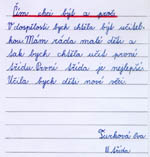 Čím chci být a proč.
V dospělosti bych chtěla být učitel-
kou. Mám ráda malé děti a
tak bych chtěla učit první
třídu. První třída je nejlepší.
Učila bych děti nové věci.
Tuchová Eva